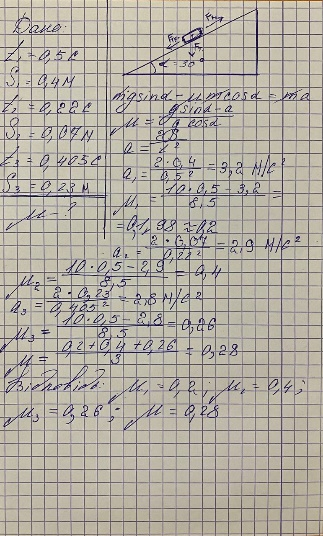 Дано:
t₁ = 0,5 с
S₁ = 0,4 м
t₂ = 0,22 с
S₂ = 0,07 м
t₃ = 0,405 с
S₃ = 0,23 м
μ - ?
α = 30°
mgsinα - μmgcosα = ma
μ = gsinα - a / g cosα
a = 2S / t²
a₁ = 2·0,4 / 0,5² = 3,2 м/с²
μ₁ = 10·0,5 - 3,2 / 8,5 =
= 0,198 ≈ 0,2
a₂ = 2·0,07 / 0,22² = 2,9 м/с²
μ₂ = 10·0,5 - 2,9 / 8,5 = 0,4
a₃ = 2·0,23 / 0,405² = 2,8 м/с²
μ₃ = 10·0,5 - 2,8 / 8,5 = 0,26
μ = 0,2 + 0,4 + 0,26 / 3 = 0,28
Відповідь: μ₁ = 0,2; μ₂ = 0,4;
μ₃ = 0,26; μ = 0,28